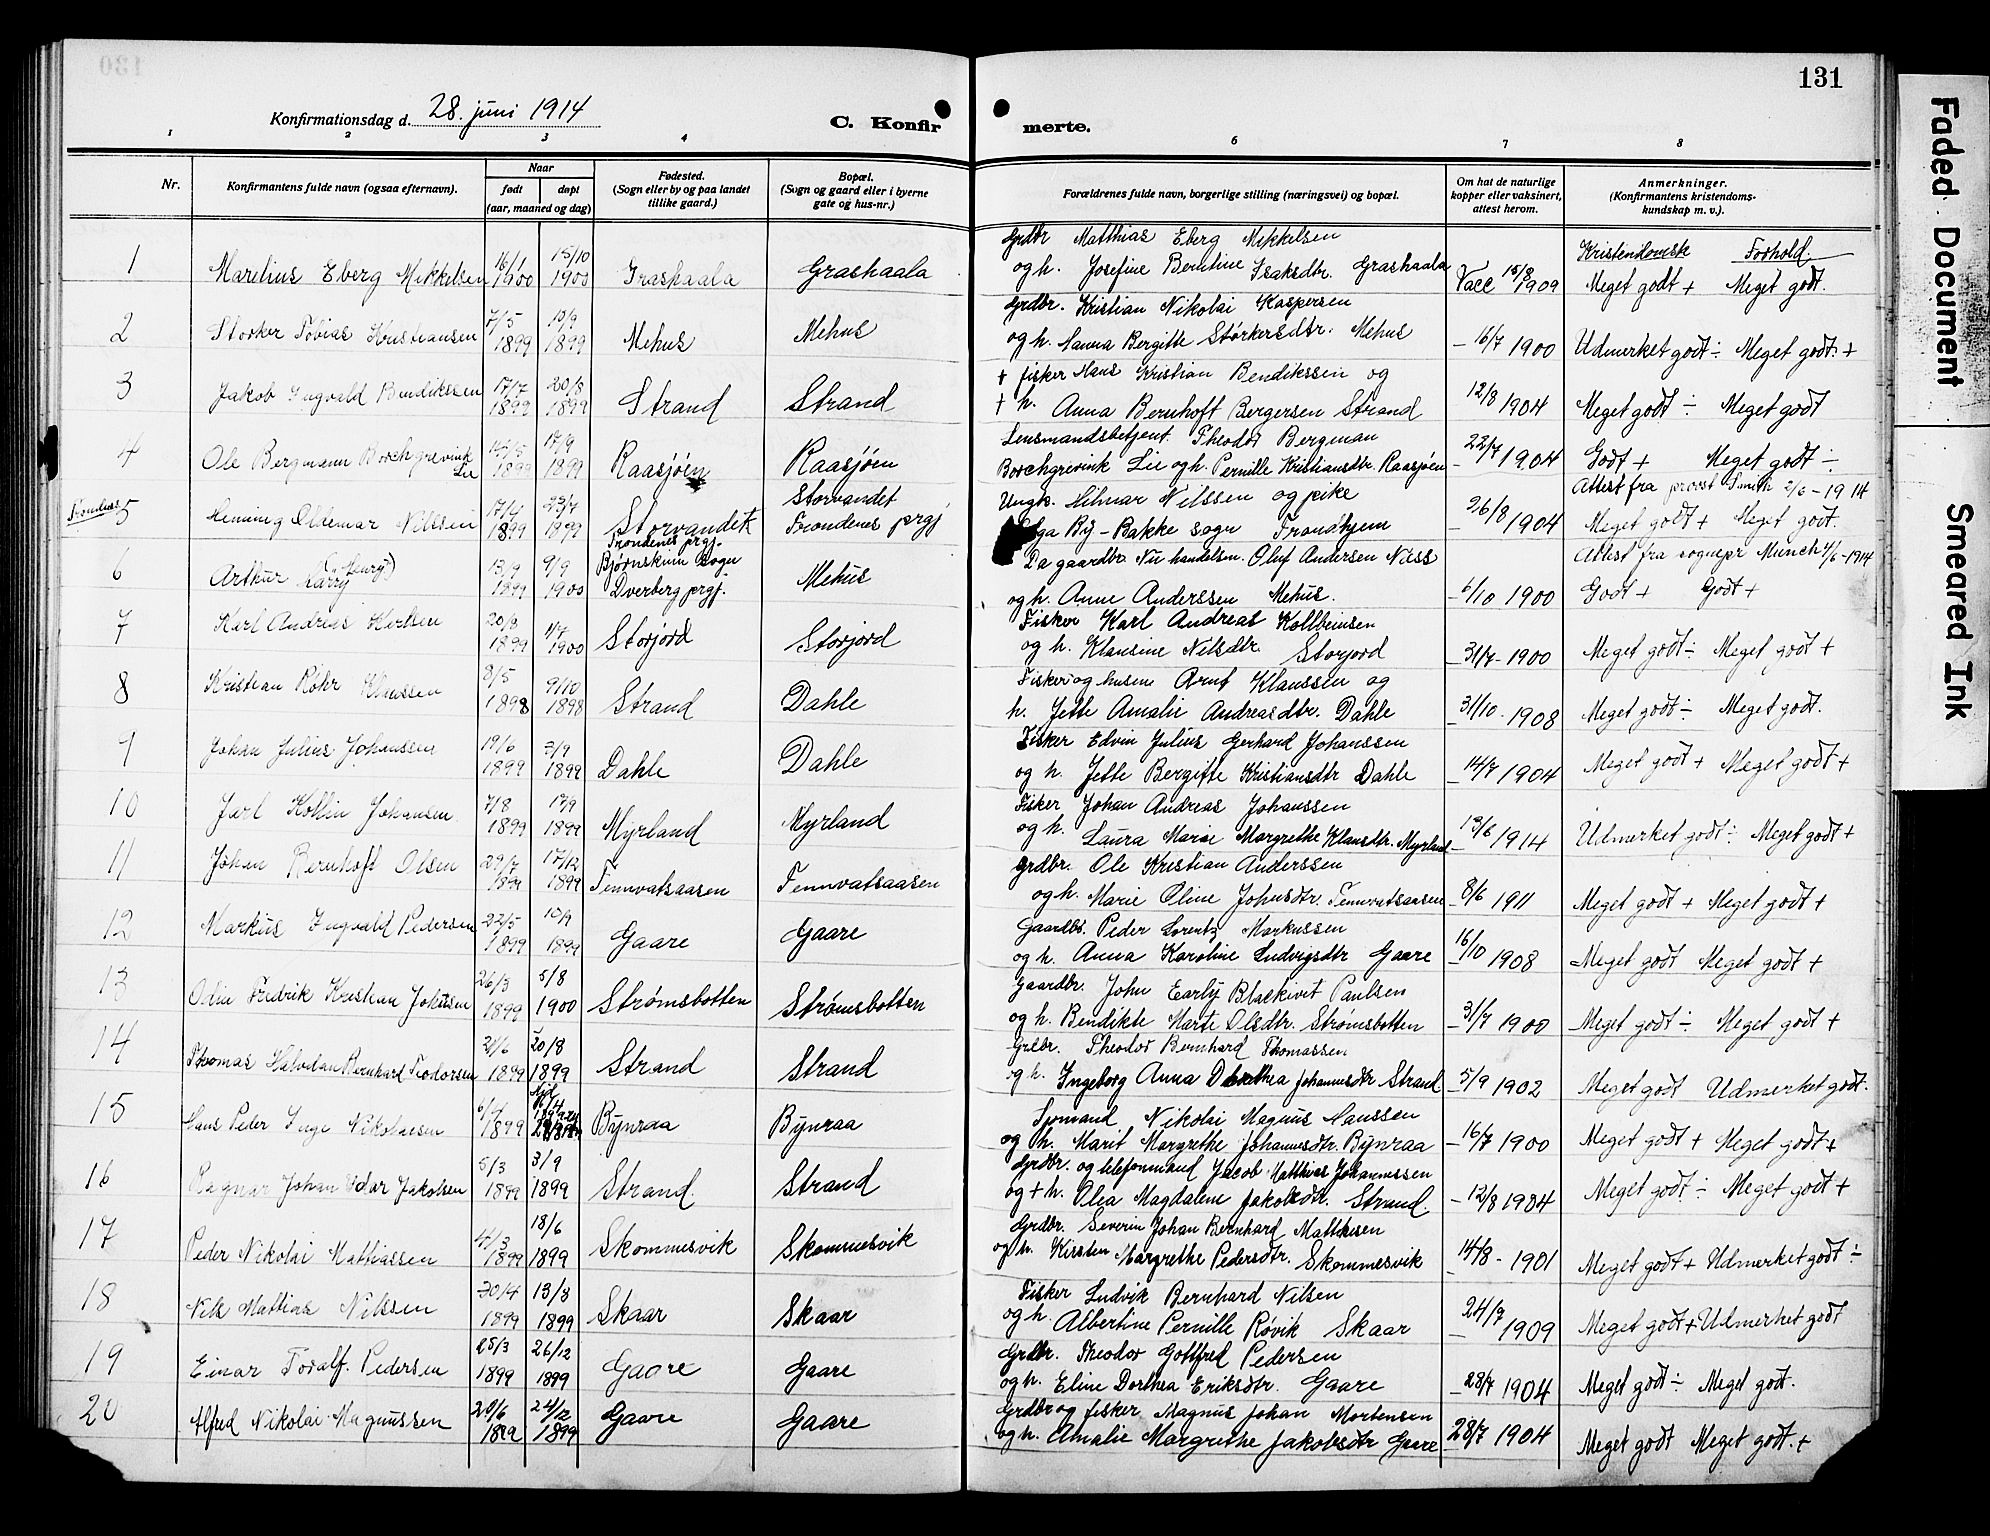 131
Konfirmationsdag d. 28. juni 1914
C. Konfirmerte.
1 2 3 4 6 7 8
Nr.
Konfirmantens fulde navn (ogsaa efternavn).
Naar
født døpt
(aar, maaned og dag)
Fødested.
(Sogn eller by og paa landet
tillike gaard.)
Bopæl.
(Sogn og gaard eller i byerne
gate og hus-nr.)
Forældrenes fulde navn, borgerlige stilling (næringsvei) og bopæl.
Om hat de naturlige
kopper eller vaksinert,
attest herom.
Anmerkninger.
(Konfirmantens kristendoms-
kundskap m. v.).
Kristendomsk Forhold.
1 Marelius Eberg Mikkelsen 16/1 1900 15/10 1900 Grashaala Grashaala
Grdbr Matthias Eberg Mikkelsen
og h. Josefine Berntine Isaksdtr. Grashaala Vacc 15/8 1909 Meget godt + Meget godt.
2 Storker Tobias Kristiansen 7/5 1899 10/9 1899 Mehus Mehus
Grdbr. Kristian Nikolai Kaspersen
og h. Hanna Bergitte Størkersdtr. Mehus – 16/7 1900 Udmerket godt ÷ Meget godt. +
3 Jakob Ingvald Bendikssen 17/7 1899 20/8 1899 Strand Strand
+ fisker Hans Kristian Bendikssen og
+ h. Anna Bernhoft Bergersen Strand 12/8 1904 Meget godt ÷ Meget godt
4 Ole Bergmann Borchgrevink Lie 1899 17/9 1899 Raasjøen Raasjøen
Lensmandsbetjent Theodor Bergman
Borchgrevink Lie og h. Pernille Kristiansdtr. Raasjøen – 22/7 1904 Godt + Meget godt ÷
Trondenes
5 Henning Oldemar Nilsen 17/4 1899 23/7 1899 Storvandet Trondenes prgj. Storvandet Trondenes prgj
Ungk. Hilmar Nilssen og pike
Olga By – Bakke sogn Trondhjem – 26/8 1904 Attest fra provst Smith 2/6 – 1914
Meget godt + Meget godt.
6 Arthur Harry (Henry) 13/9 1899 9/9 1900 Bjørnskinn Sogn Dverberg prgj. Mehus
Da gaardbr. Nu handelsm. Oluf Andersen Næss
og h. Anne Anderssen Mehus. – 6/10 1900 Attest fra sognepr Munch 4/6 – 1914
Godt + Godt +
7 Karl Andreas Karlsen 20/8 1899 1/7 1900 Storjord Storjord
Fisker Karl Andreas Kolbeinsen
og h. Klausine Nilsdtr. Storjord – 31/7 – 1900 Meget godt ÷ Meget godt +
8 Kristian Røhr Klaussen 8/5 1898 9/10 1898 Strand Dahle
Fisker og husm. Arnt Klaussen og
h. Jette Amalie Andreasdtr. Dahle – 31/10 – 1908 Meget godt ÷ Meget godt.
9 Johan Julius Johanssen 19/6 1899 3/9 1899 Dahle Dahle
Fisker Edvin Julius Gerhard Johanssen
og h. Jette Bergitte Kristiansdtr Dahle – 14/7 1904 Meget godt + Meget godt +
10 Jarl Kolbin Johansen 7/8 1899 17/9 1899 Myrland Myrland
Fisker Johan Andreas Johanssen
og h. Laura Marie Margrethe Klausdtr. Myrland – 13/6 1914 Udmerket godt ÷ Meget godt +
11 Johan Bernhoft Olsen 29/7 1899 17/12 1899 Tennvatsaasen Tennvatsaasen
Grdbr. Ole Kristian Anderssen
og h. Marie Oline Johnsdtr. Tennvatsaasen 8/6 1911 Meget godt + Meget godt +
12 Markus Ingvald Pedersen 22/5 1899 10/9 1899 Gaare Gaare
Gaardbr. Peder Lorentz Markussen
og h. Anna Karoline Ludvigsdtr Gaare 16/10 1908 Meget godt Meget godt +
13 Odin Fredrik Kristian Johnsen 26/3 1899 5/8 1900 Strømsbotten Strømsbotten
Gaardbr. John Early Blackivit Paulsen
og h. Bendikte Marte Olsdtr. Strømsbotten – 31/7 1900 Meget godt ÷ Meget godt +
14 Thomas Halvdan Bernhard Teodorsen 21/6 1899 20/8 1899 Strand Strand
Grdbr. Theodor Bernhard Thomassen
og h. Ingeborg Anna Dorthea Johannesdtr Strand – 5/9 1902 Meget godt Udmerket godt.
15 Hans Peder Inge Nikolaisen 6/4 1899 Bynraa Bynraa
Sjømand Nikolai Magnus Hanssen
og h. Marit Margrethe Johannesdtr. Bynraa – 16/7 1900 Meget godt + Meget godt +
16 Ragnar Johan Odar Jakobsen 5/3 1899 3/9 1899 Strand. Strand
Grdbr. og telefonmand Jacob Matthias Johannessen
og + h. Olea Magdalene Jakobsdtr. Strand. – 12/8 1904 Meget godt ÷ Meget godt +
17 Peder Nikolai Mathiassen 17/3 1899 18/6 1899 Skommesvik Skommesvik
Grdbr. Severin Johan Bernhard Matthisen
og h. Kirsten Margrethe Pedersdtr. Skommesvik – 14/8 – 1901 Meget godt + Udmerket godt ÷
18 Nils Mattias Nilssen 30/4 1899 13/8 1899 Skaar Skaar
Fisker Ludvik Bernhard Nilsen
og h Albertine Pernille Røvik Skaar – 24/9 1909 Meget godt + Udmerket godt
19 Einar Toralf. Pedersen 25/3 1899 26/12 1899 Gaare Gaare
Grdbr. Theodor Gottfred Pedersen
og h. Eline Dorthea Eriksdtr. Gaare – 28/7 1904 Meget godt ÷ Meget godt.
20 Alfred Nikolai Magnussen 20/6 1899 24/12 1899 Gaare Gaare
Grdbr og fisker Magnus Johan Mortensen
og h. Amalie Margrethe Jakobsdtr Gaare 28/7 1904 Meget godt Meget godt. +
Faded Document
Smeared Ink